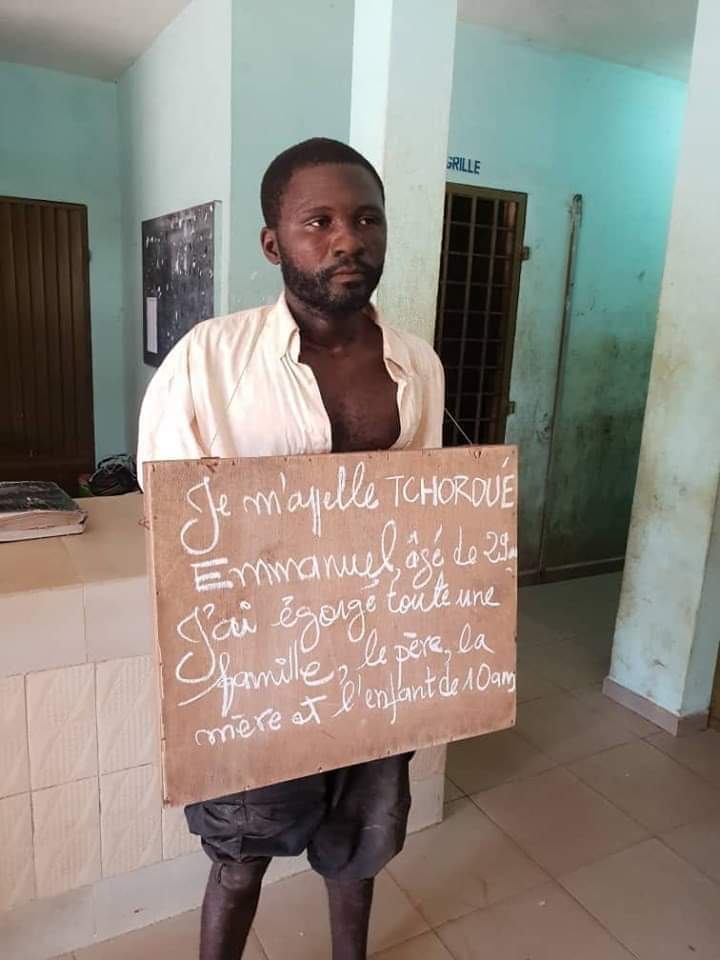 GRILLE
Je m'appelle TCHOROUÉ
Emmanuel, âgé de 29
J'ai égorgé toute une
famille, le père, la
mère et l'enfant de 10 ans